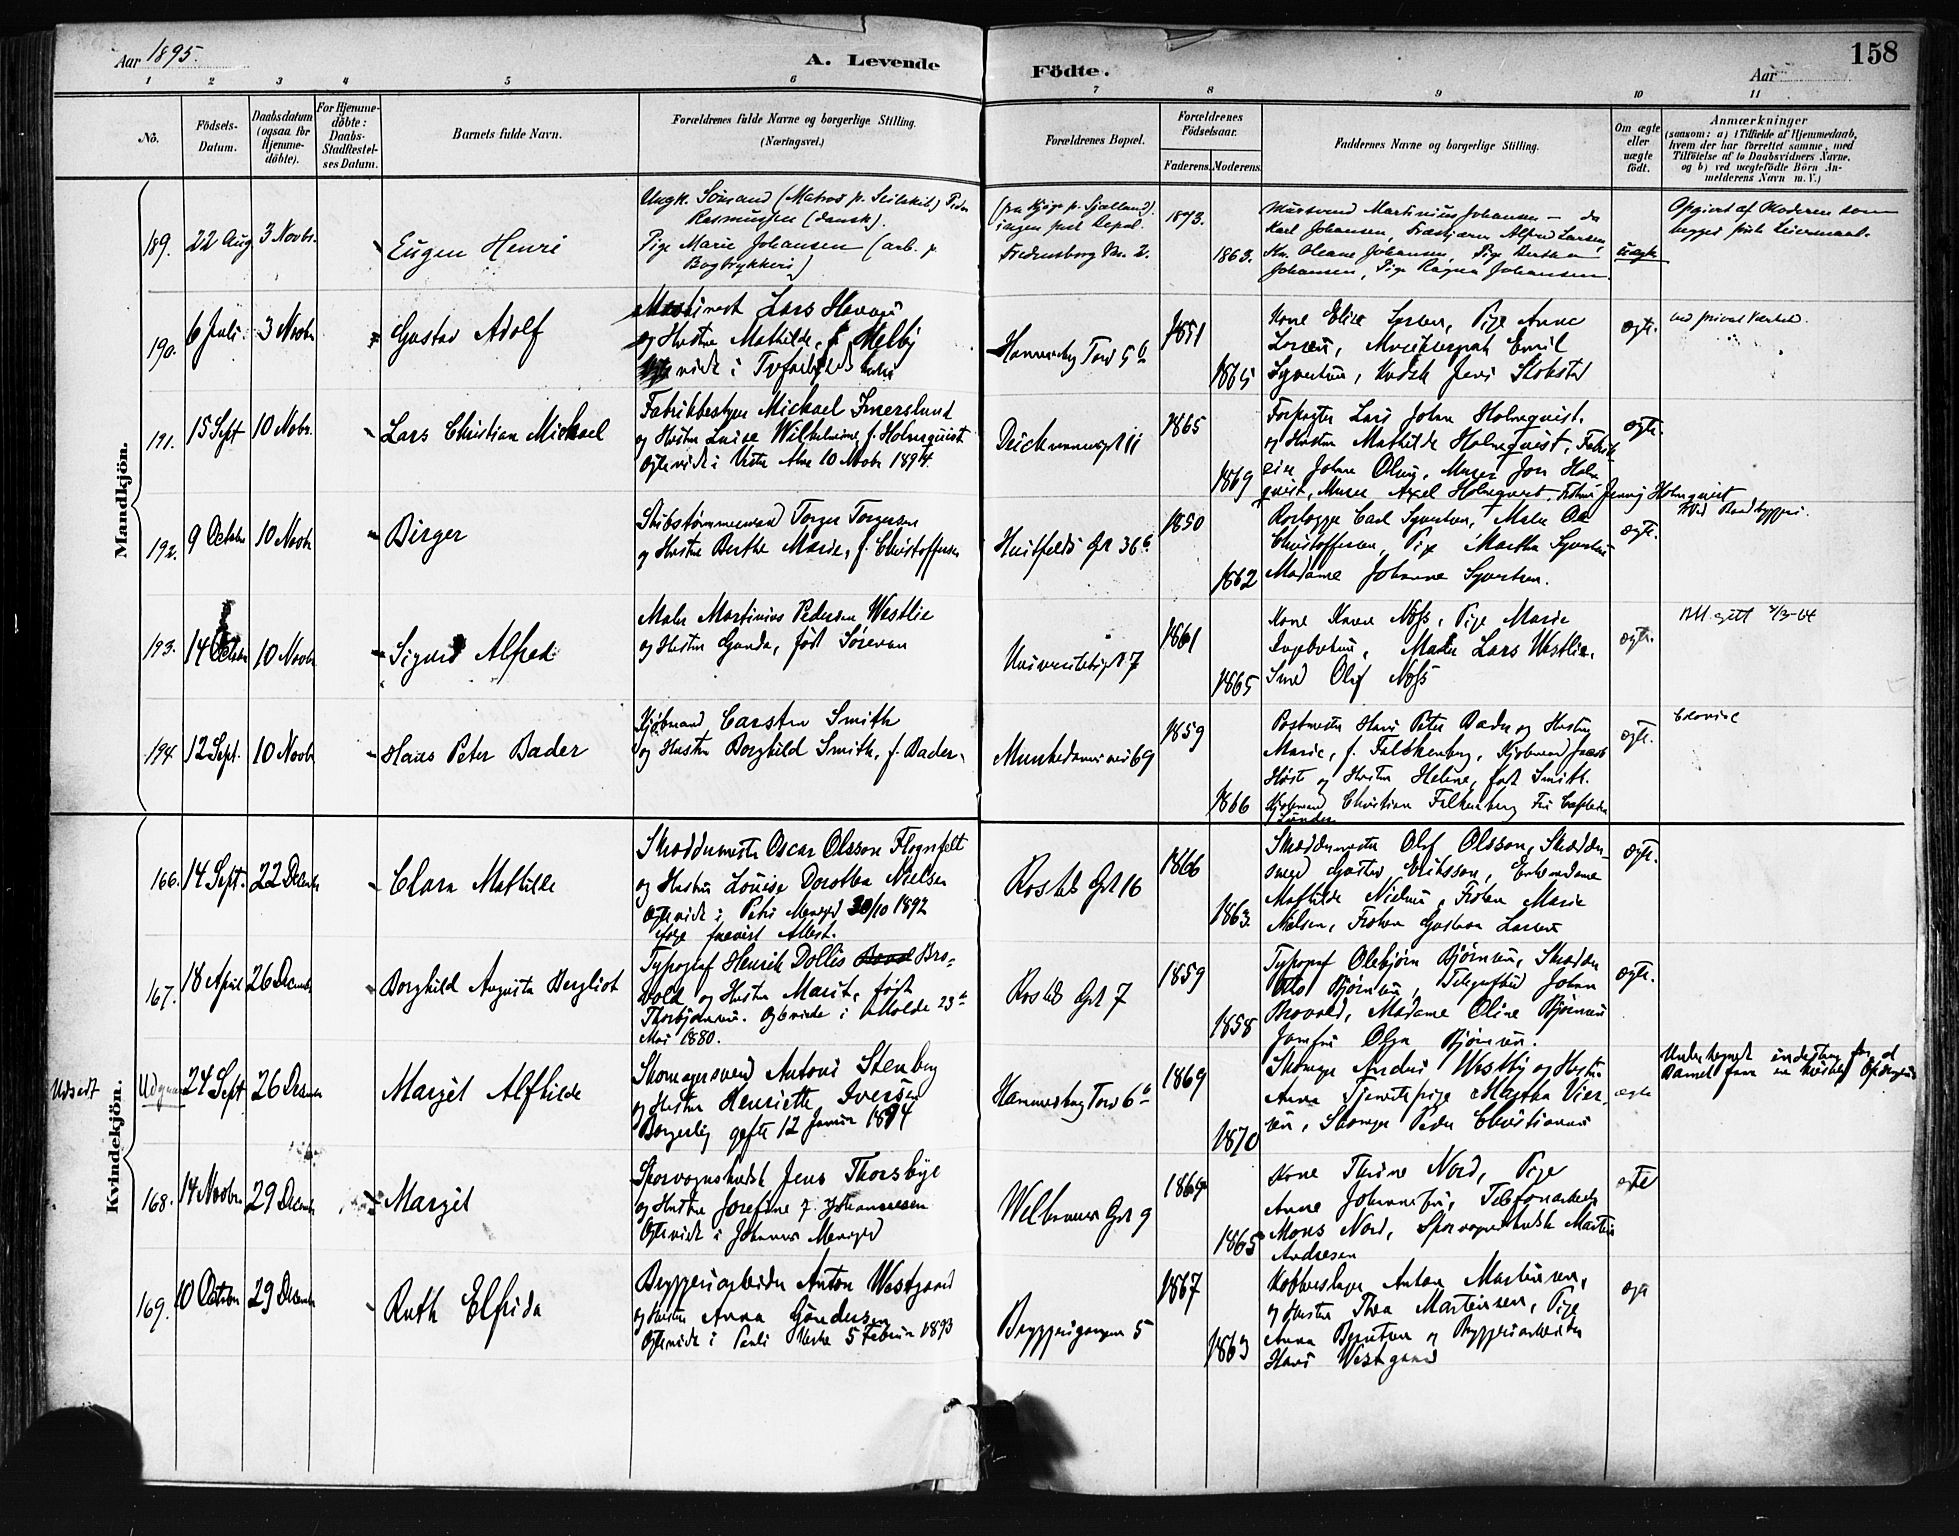 Aar 1895.
A. Levende
Födte.
Aar
158
1 2 3 4 5 6 7 8 9 10 11
No.
Födsels-
Datum.
Daabsdatum
(ogsaa for
Hjemme-
döbte).
For Hjemme-
döbte:
Daabs-
Stadfæstel-
ses Datum.
Barnets fulde Navn.
Forældrenes fulde Navne og borgerlige Stilling.
(Næringsvei.)
Forældrenes Bopæl.
Forældrenes
Födselsaar.
Faderens. Moderens.
Faddernes Navne og borgerlige Stilling.
Om ægte
eller
uægte
födt.
Anmærkninger
(saasom: a) i Tilfælde af Hjemmedaab,
hvem der har forrettet samme, med
Tilföielse af to Daabsvidners Navne.
og b) ved uægtefödte Börn An-
melderens Navn m. V.)
Mandkjön.
189. 22 Aug 3 Novbr.
Eugen Henri
Ungk. Sömand (Matros p. Seilskib) Peder
Rasmussen (dansk).
Pige Marie Johansen (arb. p.
Bogtrykkeri)
(fra Kjöge p. Sjælland).
ingen fast Bopæl.
Fredensborg Nr. 2.
1873.
1863.
Murswend Martinius Johansen
Karl Johansen, Alfred Larsen,
Oleane Johansen, Pige Bertha
Johansen, Pige Ragna Johansen.
uægte
Opgivet af Moderen som
190. 6 Juli 3 Novbr
Gustav Adolf
Lars Hansen
og Hustru Mathilde, f. Melby
Hammersborg Torv 5 b
1851
1865
Kone Elise Larsen, Pige Anne
Larsen, Emil
Syvertsen, Kudsk Jens
ægte.
191. 15 Sept 10 Nobr.
Lars Christian Mickael
Fabrikbestyrer Mickael Imerslund
og Hustru Luise Wilhelmine, f. Holmquist
Ægteviet i Vestre Aker 10 Novbr 1894.
Deichmannsgt 11
1865
1869
Forpagter Lars Johan Holmquist.
og Hustru Mathilde Holmquist, Fabrik-
eier Johan Olsen, Murer Jon Holm-
quist, Murer Axel Holmquist. Frøken Jenny Holmquist
ægte.
192. 9 October 10 Novbr
Birger
Skibstømmermand Torger Torgersen
og Hustru Berthe Marie, f. Christoffersen
Huitfelds Gt 36 b
1850
1862
Carl Syvertsen, Maler Ole
Christoffersen, Pige Martha Syvertsen
Madame Johanne Syvertsen.
ægte.
193. 14 October 10 Novbr
Sigurd Alfred
Maler Martinius Pedersen Westlie
og Hustru Gunda, født Sørensen
Universitetsgt 7
1861
1865
Kone Karen Næss, Pige Marie
Ingebretsen, Maler Lars Westlie,
Smed Olaf Næss
ægte.
Att. gitt
194 12 Sept. 10 Novbr
Hans Peter Bader
Kjøbmand Carsten Smith
og Hustru Borghild Smith, f. Bader.
Munkedamsvei 69
1859
1866
Postmester Hans Peter Bader og Hustru
Marie, f. Falkenberg, Kjøbmand Jacob
Høst og Hustru Helene, født Smith.
Kjøbmand Christian Falkenberg
ægte.
Kvindekjön.
166. 14 Sept. 22 Decembr
Clara Mathilde
Skræddermester Oscar Olsson Flognfelt
og Hustru Louise Dorothea Nielsen
Ægteviet i Petri Menigh 30/10 1892
ifølge forevist Attest.
Rosteds Gt 16
1866
1863.
Skræddermester Olof Olsson, Skrædder-
svend Gustav Eriksson, Enkemadame
Mathilde Nielsen, Frøken Marie
Nielsen, Frøken Gustava Larsen
ægte.
167. 18 April 26 Decembr
Borghild Augusta Bergliot
Typograf Henrik Dollis Bro-
vold og Hustru Marit, født
Thorbjørnsen. Ægteviet i Molde 23de
Mai 1880.
Rosteds Gt 7
1859
1858
Typograf Olebjørn Bjørnsen, Skrædder
Bjørnsen, Telegrafbud Johan
Brovold, Madame Oline Bjørnsen
Jomfru Olga Bjørnsen.
ægte.
Udsedt
Udgaar 24 Sept 26 Decembr
Margit Alfhilde
Skomagersvend Antoni Stenberg
og Hustru Henriette Iversen
Borgerlig gifte 12 Januar 1894
Hammersborg Torv 6 b
1869
1870
Skomager Anders Westby og Hustru
Anna Tjenestepige Martha
Skomager Peder Christiansen
ægte
168. 14 Novbr 29 Decembr
Margit
Sporvognskudsk Jens Thorsbye
og Hustru Josefine f. Johannessen
Ægteviet i Johannes Menighed
Welhavens Gt 9
1869
1865
Kone Thrine Nord, Pige
Anne Johannesen, Telefonarbeider
Mons Nord, Sporvognskudsk Martin
Andresen
ægte
169. 10 October 29 Decembr
Ruth Elfrida
Bryggeriarbeider Anton Westgaard
og Hustru Anna Gundersen
Ægteviet i Pauli Kirke 5 Februar 1893
Bryggerigangen 5
1867
1863
Kobberslager Anton Martinsen,
og Hustru Thea Martinsen, Pige
Anna Berntsen og Bryggeriarbeider
Hans Westgaard
ægte